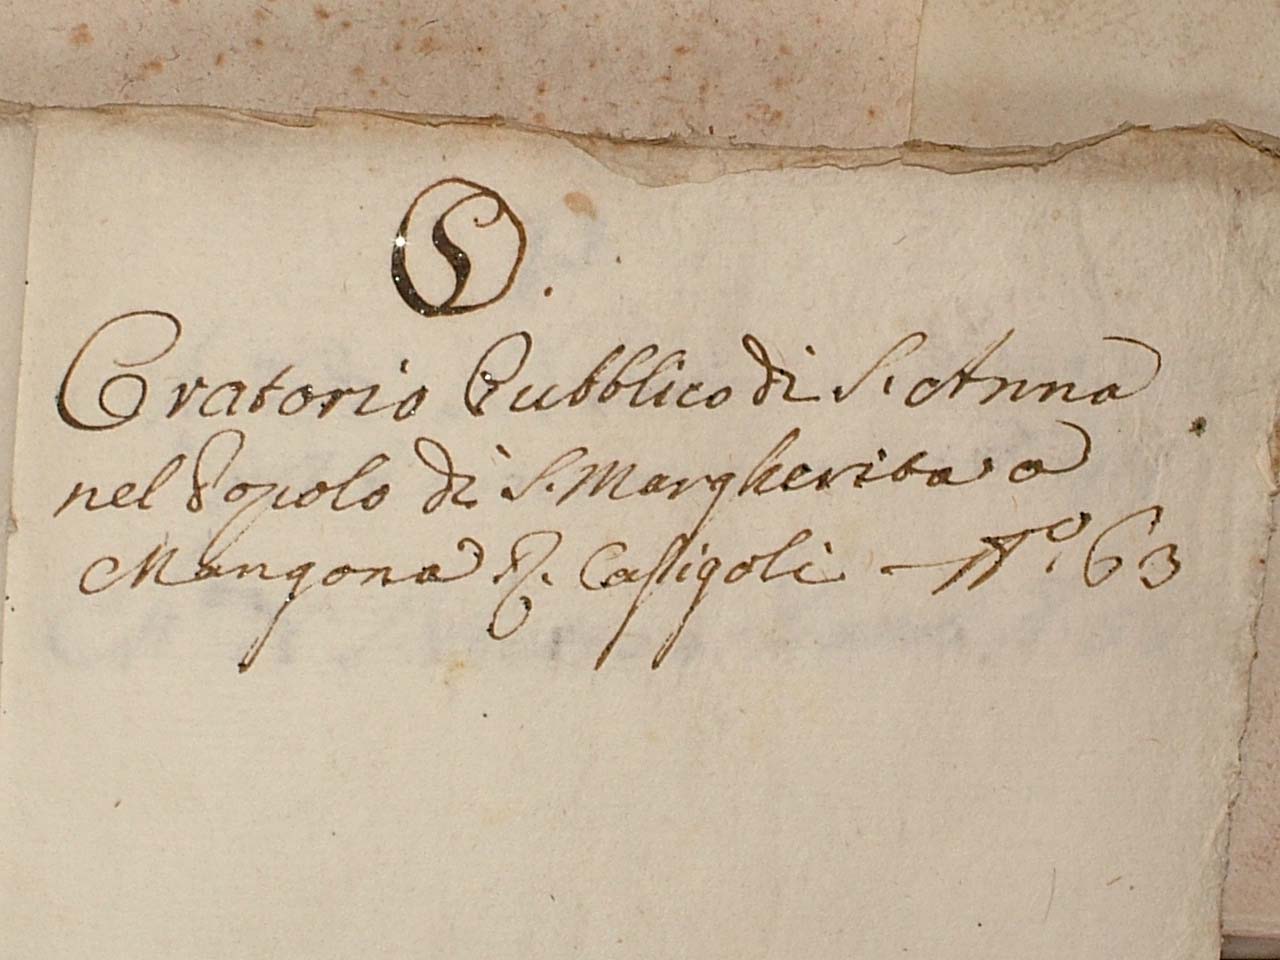 O.
Oratorio Pubblico di S. Anna
nel Popolo di S. Margherita a
Mangona Casigoli - N.º 63